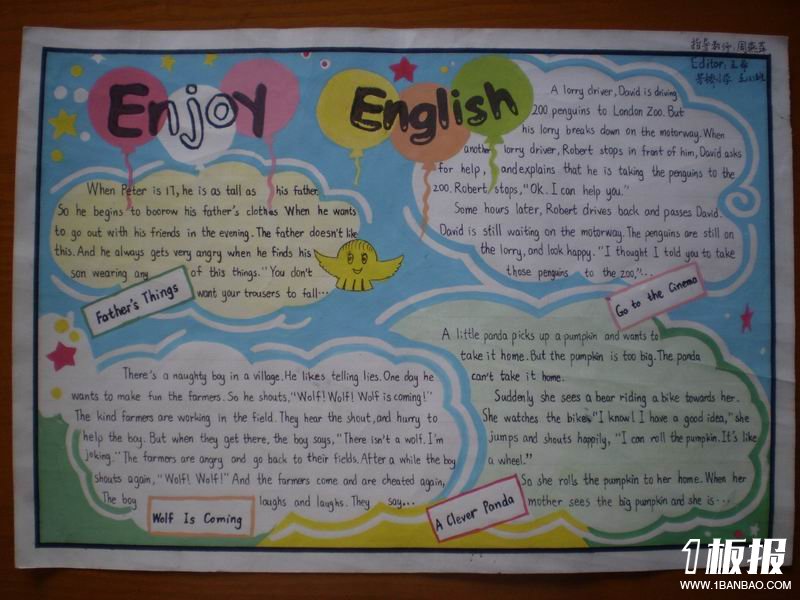 Enjoy English
指导教师:周燕萍
Editor:
When Peter is 17, he is as tall as his father.
So he begins to boorow his father's clothes When he wants
to go out with his friends in the evening. The father doesn't like
this. And he always gets very angry when he finds his
son wearing any of this things. "You don't
want your trousers to fall...
Father's Things
A lorry driver, David is driving
200 penguins to London Zoo. But
his lorry breaks down on the motorway. When
another lorry driver, Robert stops in front of him, David asks
for help, and explains that he is taking the penguins to the
zoo. Robert stops, "Ok. I can help you."
Some hours later, Robert drives back and passes David.
David is still waiting on the motorway. The penguins are still on
the lorry, and look happy. "I thought I told you to take
those penguins to the zoo."...
Go to the Cinema
There's a naughty boy in a village. He likes telling lies. One day he
wants to make fun the farmers. So he shouts, "Wolf! Wolf! Wolf is coming!"
The kind farmers are working in the field. They hear the shout, and hurry to
help the boy. But when they get there, the boy says, "There isn't a wolf. I'm
joking." The farmers are angry and go back to their fields. After a while the boy
shouts again, "Wolf! Wolf!" And the farmers come and are cheated again,
The boy laughs and laughs. They say...
Wolf Is Coming
A little panda picks up a pumpkin and wants to
take it home. But the pumpkin is too big. The panda
can't take it home.
Suddenly she sees a bear riding a bike towards her.
She watches the bike, "I know! I have a good idea," she
jumps and shouts happily, "I can roll the pumpkin. It's like
a wheel."
So she rolls the pumpkin to her home. When her
mother sees the big pumpkin and she is...
A Clever Panda
1板报
WWW.1BANBAO.COM